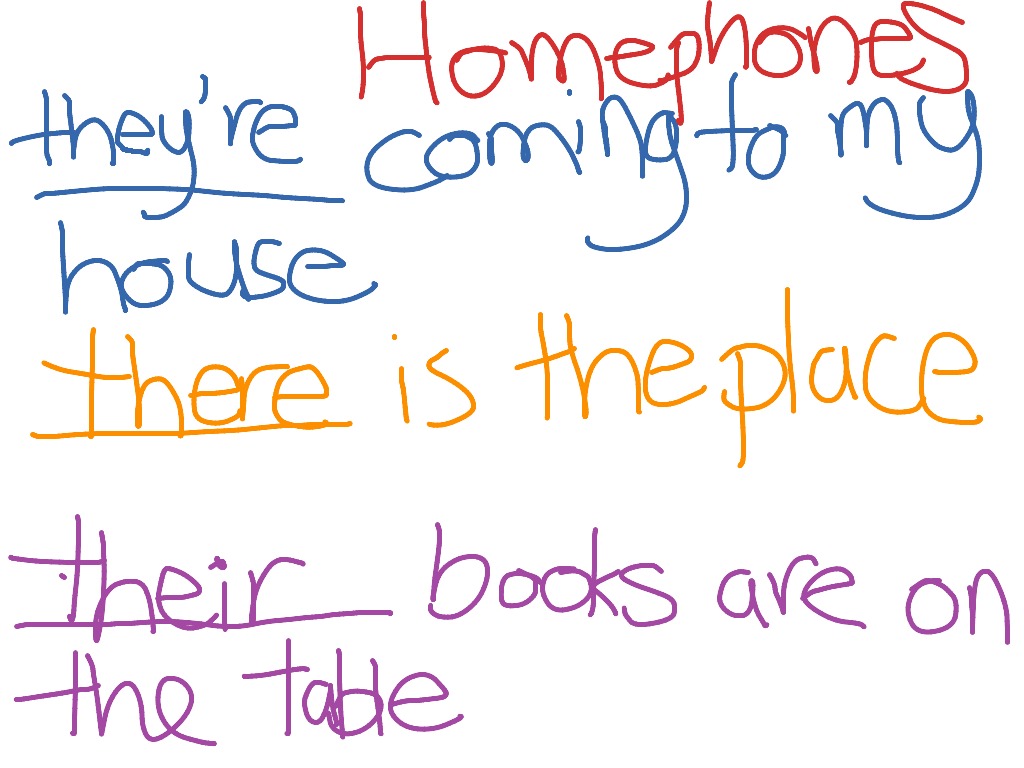 Homephones
they're coming to my
house
there is the place
their books are on
the table